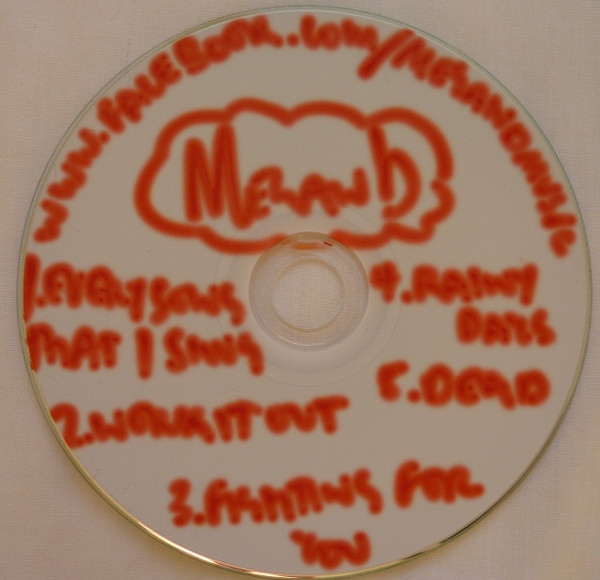 WWW.FACEBOOK.COM/MEGANDMUSIC
MEGAN D
1.EVERY SONG
THAT I SING
2.WORK IT OUT
3.FIGHTING FOR
YOU
4.RAINY
DAYS
5.DEAD